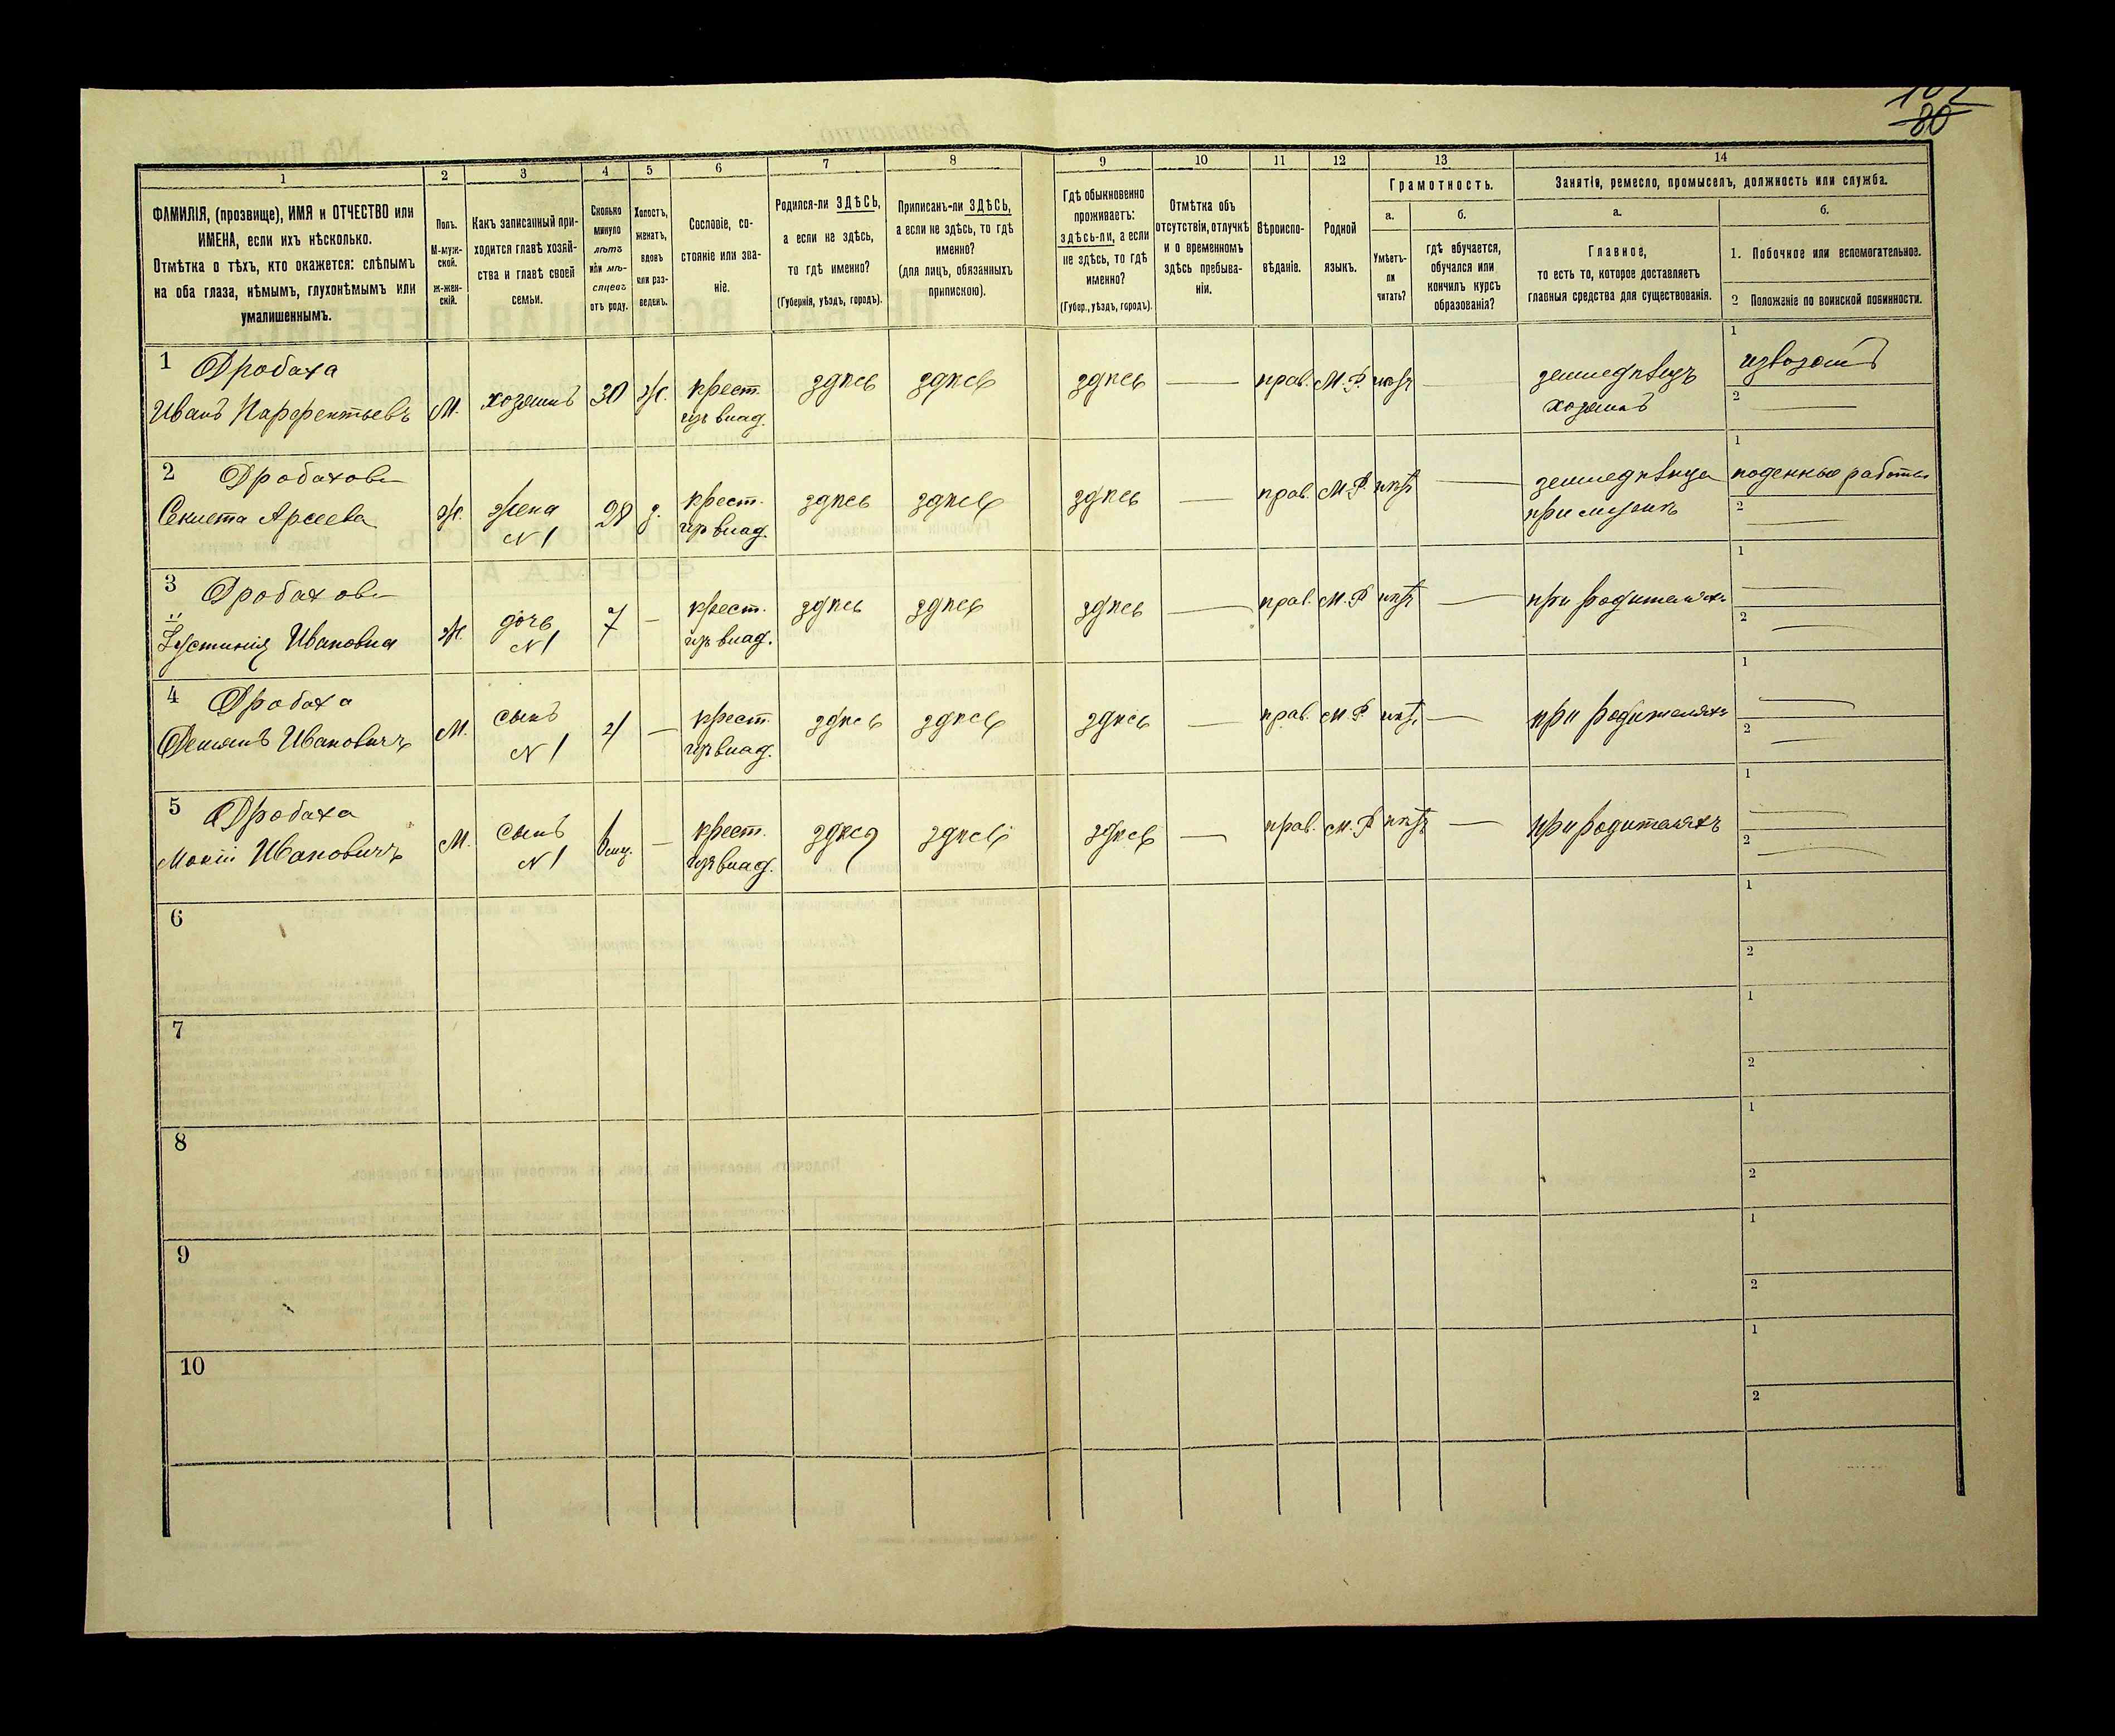 102
80
1
2
3
4
5
6
7
8
9
10
11
12
13
14
ФАМИЛІЯ, (прозвище), ИМЯ и ОТЧЕСТВО или
ИМЕНА, если ихъ нѣсколько.
Отмѣтка о тѣхъ, кто окажется: слѣпымъ
на оба глаза, нѣмымъ, глухонѣмымъ или
умалишеннымъ.
Полъ.
М-муж-
ской.
ж-жен-
скій.
Какъ записанный при-
ходится главѣ хозяй-
ства и главѣ своей
семьи.
Сколько
минуло
лѣтъ
или мѣ-
сяцевъ
отъ роду.
Холостъ,
женатъ,
вдовъ
или раз-
веденъ.
Сословіе, со-
стояніе или зва-
ніе.
Родился-ли ЗДѢСЬ,
а если не здѣсь,
то гдѣ именно?
(Губернія, уѣздъ, городъ).
Приписанъ-ли ЗДѢСЬ,
а если не здѣсь, то гдѣ
именно?
(для лицъ, обязанныхъ
припискою).
Гдѣ обыкновенно
проживаетъ:
здѣсь-ли, а если
не здѣсь, то гдѣ
именно?
(Губер., уѣздъ, городъ).
Отмѣтка объ
отсутствіи, отлучкѣ
и о временномъ
здѣсь пребыва-
ніи.
Вѣроиспо-
вѣданіе.
Родной
языкъ.
Грамотность.
а.
б.
Умѣетъ-
ли
читать?
гдѣ обучается,
обучался или
кончилъ курсъ
образованія?
Занятіе, ремесло, промыселъ, должность или служба.
а.
б.
Главное,
то есть то, которое доставляетъ
главныя средства для существованія.
1. Побочное или вспомогательное.
2 Положеніе по воинской повинности.
1 Дробаха
Иванъ Парфентьевъ
М.
хозяинъ
30
ж.
крест.
изъ влад.
здѣсь
здѣсь
здѣсь
—
прав.
М. Р.
нѣтъ
—
земледѣлецъ
хозяинъ
1
извозомъ
2 —
2 Дробахова
Арсеева
Ж.
жена
N 1
28
з.
крест.
изъ влад.
здѣсь
здѣсь
здѣсь
—
прав.
М. Р.
нѣтъ
—
земледѣлица
при мужѣ
1
поденные работы
2 —
3 Дробахова
Іустинія Ивановна
Ж.
дочь
N 1
7
—
крест.
изъ влад.
здѣсь
здѣсь
здѣсь
—
прав.
М. Р
нѣтъ
—
при родителяхъ
1 —
2 —
4 Дробаха
Демьянъ Ивановичъ
М.
сынъ
N 1
4
—
крест.
изъ влад.
здѣсь
здѣсь
здѣсь
—
прав.
М. Р.
нѣтъ
—
при родителяхъ
1 —
2 —
5 Дробаха
Мокій Ивановичъ
М.
сынъ
N 1
—
крест.
изъ влад.
здѣсь
здѣсь
здѣсь
—
прав.
М. Р
нѣтъ
—
при родителяхъ
1 —
2 —
6
1
2
7
1
2
8
1
2
9
1
2
10
1
2